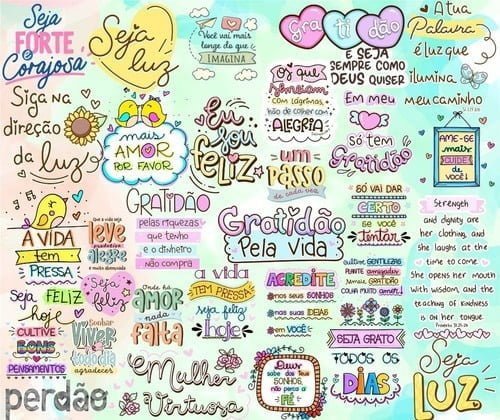 Seja
FORTE
e
Corajosa
Seja
luz
Você vai mais
longe do que
IMAGINA
Gra ti dão
E SEJA
SEMPRE COMO
DEUS QUISER
A tua
Palavra
é luz que
ilumina
meu caminho
Siga na
direção
da luz
mais
AMOR
POR FAVOR
Eu
sou
FELIZ
Os que
semeiam
com lágrimas
hão de colher com
ALEGRIA
um
PASSO
de cada vez
Em meu
só tem
Gratidão
AME-SE
mais
CUIDE
de você!
A VIDA
tem
PRESSA
Que a vida seja
leve
produtiva
alegre
e muito demorada
GRATIDÃO
pelas riquezas
que tenho
e o dinheiro
não compra
Gratidão
Pela vida
SÓ VAI DAR
CERTO
se você
Tentar
Strength
and dignity are
her clothing, and
she laughs at the
time to come
She opens her mouth
with wisdom, and the
teaching of kindness
is on her tongue.
Proverbs 31:25-26
Seja FELIZ
hoje
Seja
feliz
Onde há
AMOR
nada
falta
a vida
TEM PRESSA
seja feliz
hoje
ACREDITE
nos seus SONHOS
nas suas IDEIAS
em VOCÊ
cultive GENTILEZAS
PLANTE amizades
semeie GRATIDÃO
COLHA MUITO amor!
CULTIVE
BONS
PENSAMENTOS
Sonhar
VIVER
e todo dia
agradecer
SEJA GRATO
TODOS OS
DIAS
perdão
Mulher
Virtuosa
Deus
sabe dos seus
SONHOS,
não perca a
FÉ
Seja
LUZ